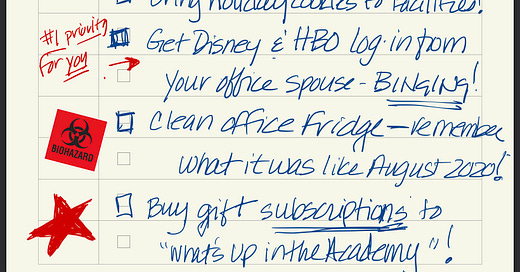 Bring holiday cookies to Facilities!
#1 priority for you
Get Disney & HBO log-in from
your office spouse - BINGING!
BIOHAZARD
Clean office fridge - remember
what it was like August 2020!
Buy gift subscriptions to
"What's up in the Academy"!